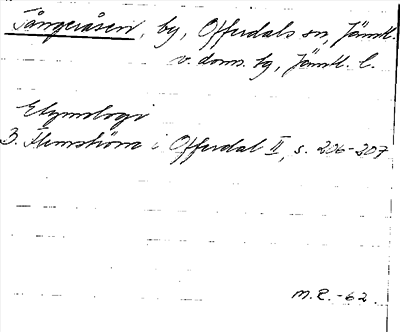 Tångeråsen, by, Offerdals sn, Jämtl.
v. doms. tg, Jämtl. l.
Etymologi
B. Flemström i Offerdal II, s. 206-207
M.E. -62